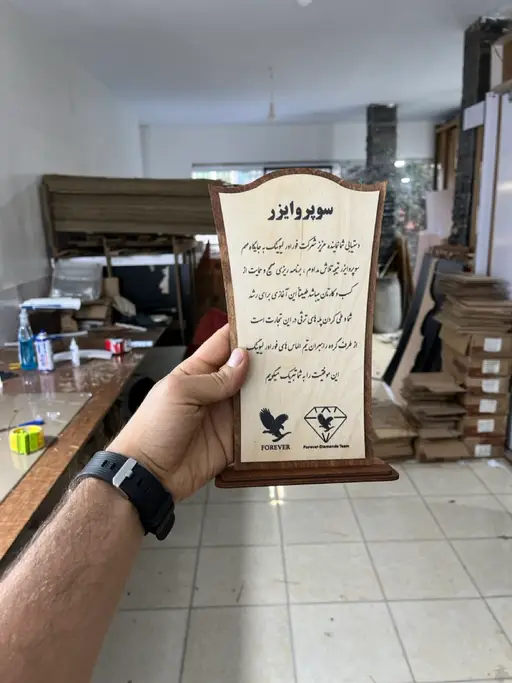 سوپروایزر
دستیابی شما نماینده عزیز شرکت فوراور لیوینگ به جایگاه مهم
سوپروایزر، نتیجه تلاش مداوم، برنامه ریزی صحیح و حمایت از
کسب و کارتان میباشد. طبیعتاً این آغازی برای رشد
شما و طی کردن پله های ترقی در این تجارت است
از طرف گروه راهبران تیم الماس های فوراور لیوینگ
این موفقیت را به شما تبریک میگویم
FOREVER
Forever Diamonds Team